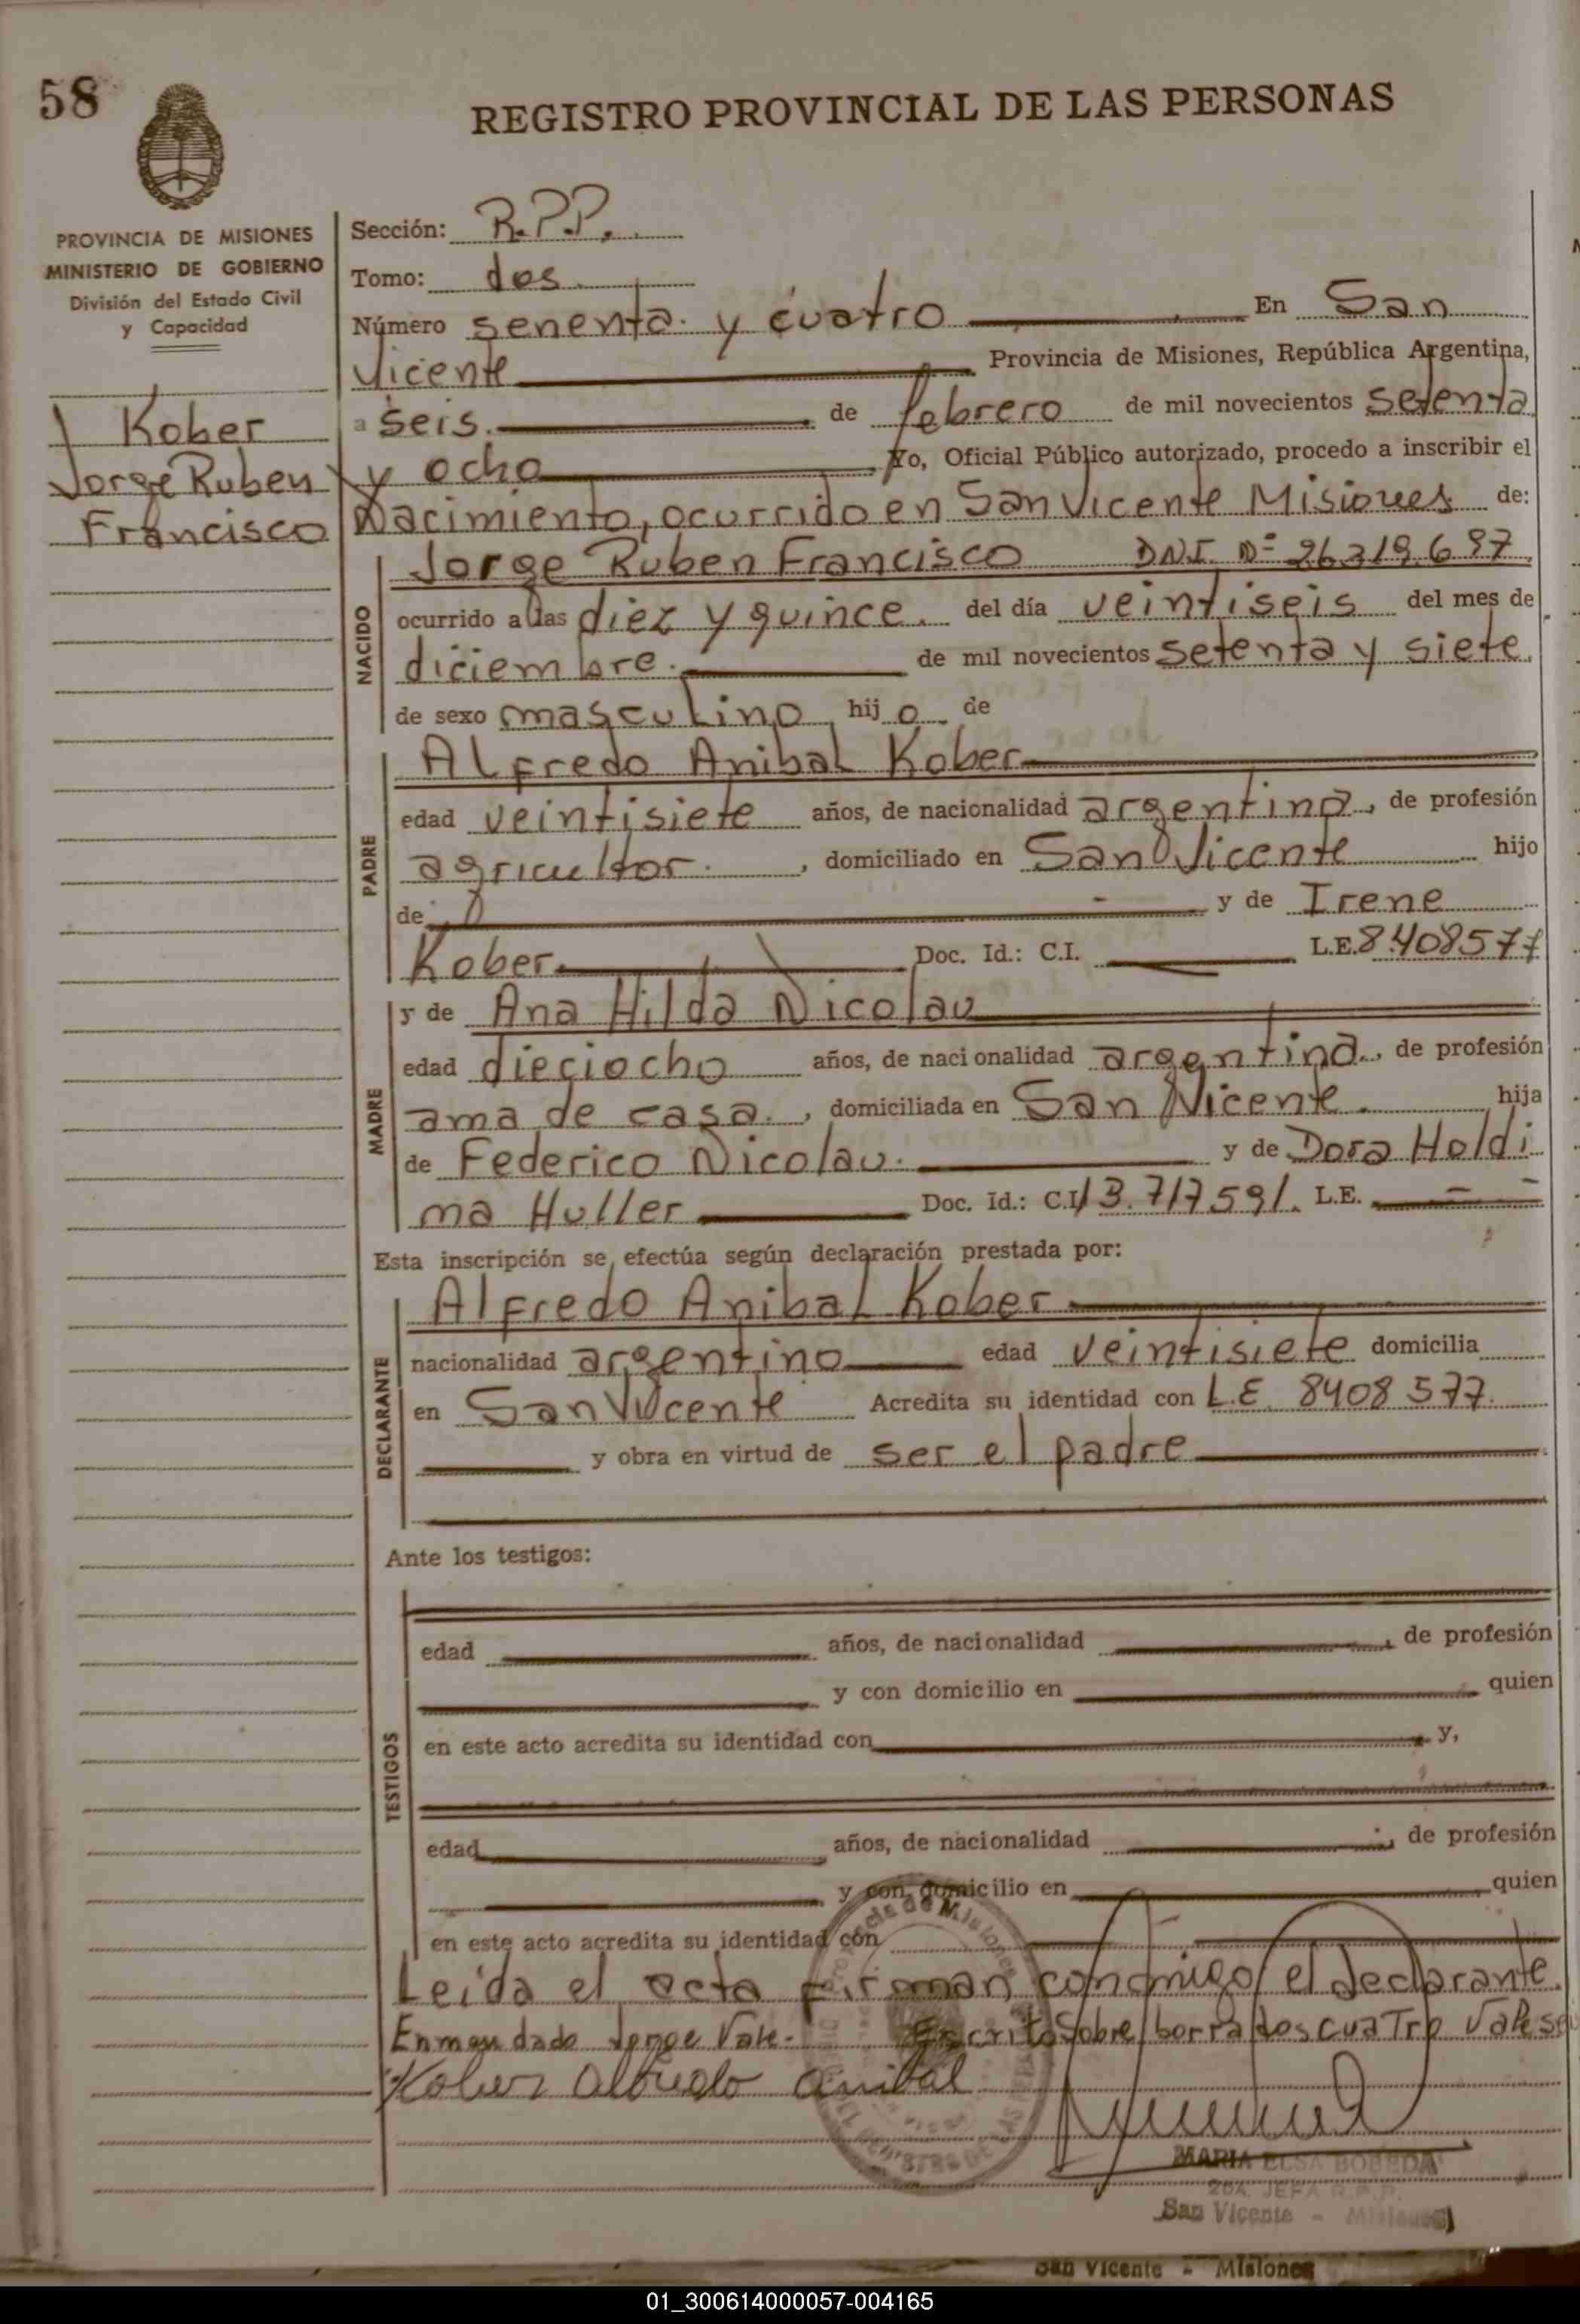 58
REGISTRO PROVINCIAL DE LAS PERSONAS
PROVINCIA DE MISIONES
MINISTERIO DE GOBIERNO
División del Estado Civil
y Capacidad
Kober
Jorge Ruben
Francisco
Sección: R.P.P.
Tomo: dos
Número senenta y cuatro En San
Vicente Provincia de Misiones, República Argentina,
a seis. de febrero de mil novecientos setenta
y ocho Yo, Oficial Público autorizado, procedo a inscribir el
Nacimiento, ocurrido en San Vicente Misiones de:
NACIDO
Jorge Ruben Francisco DNI Nº 26.319.697
ocurrido a las diez y quince. del día veintiseis del mes de
diciembre. de mil novecientos setenta y siete.
de sexo masculino hijo de
PADRE
Alfredo Anibal Kober
edad veintisiete años, de nacionalidad argentina, de profesión
agricultor. , domiciliado en San Vicente hijo
de y de Irene
Kober Doc. Id.: C.I. L.E. 8.408577
MADRE
y de Ana Hilda Nicolau
edad dieciocho años, de nacionalidad argentina., de profesión
ama de casa., domiciliada en San Vicente. hija
de Federico Nicolau. y de Dora Holdi
ma Huller Doc. Id.: C.I. 13.717591. L.E.
Esta inscripción se efectúa según declaración prestada por:
DECLARANTE
Alfredo Anibal Kober
nacionalidad argentino edad veintisiete domicilia
en San Vicente Acredita su identidad con L.E. 8408577.
y obra en virtud de ser el padre
Ante los testigos:
TESTIGOS
edad años, de nacionalidad , de profesión
y con domicilio en quien
en este acto acredita su identidad con y,
edad años, de nacionalidad , de profesión
y con domicilio en quien
en este acto acredita su identidad con
Leída el acta firman conmigo el declarante.
Enmendado Jorge Vale. Escrito Sobre borrados cuatro Vale
Kober Alfredo Anibal
Provincia de Misiones
MARIA ELSA BOBEDA
2DA. JEFA R.P.P.
San Vicente - Misiones
San Vicente - Misiones
01_300614000057-004165